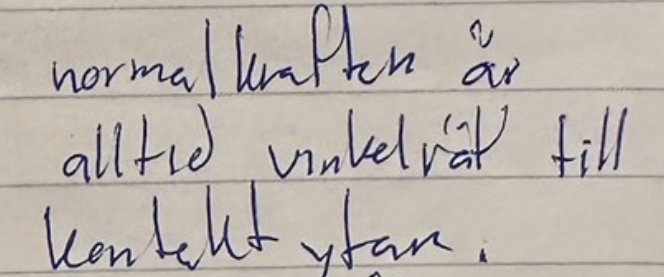 normalkraften är
alltid vinkelrät till
kontakt ytan.